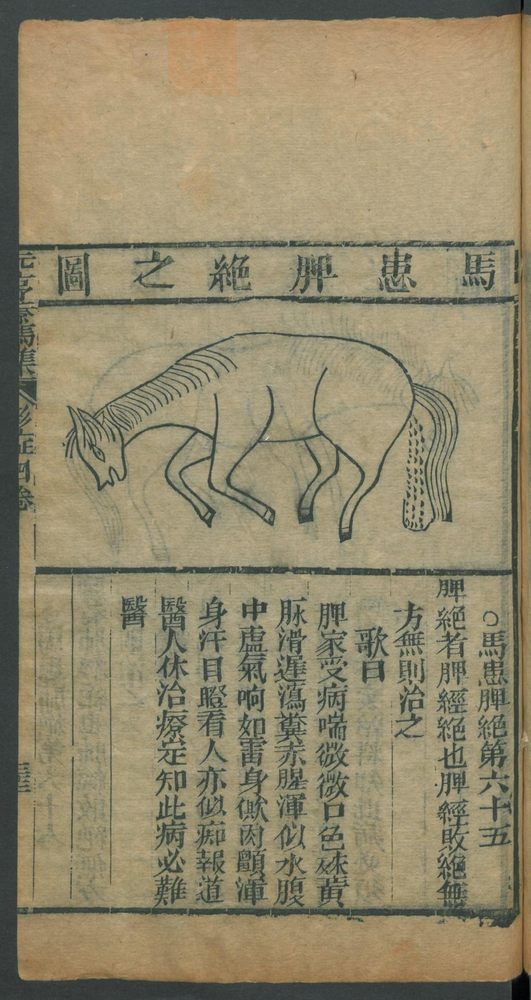 馬患脾絶之圖
○馬患脾絶第六十五
脾絶者脾經絶也脾經敗絶無
方無則治之
歌曰
脾家受病喘微微口色殊黄
脉滑遲瀉糞赤腥渾似水腹
中虛氣响如雷身㑥肉顫渾
身汗目瞪看人亦似痴報道
醫人休治療定知此病必難
醫
元亨療馬集
卷